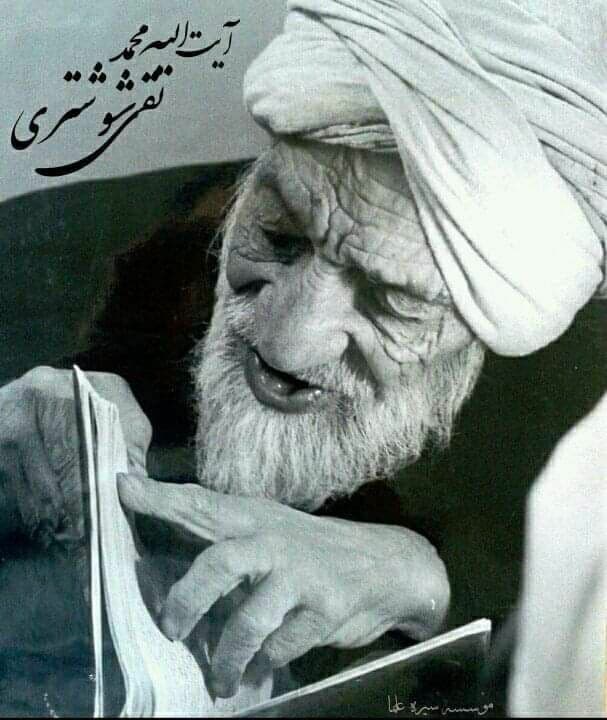 آیت الله محمد
تقی شوشتری
موسسه سیره علما